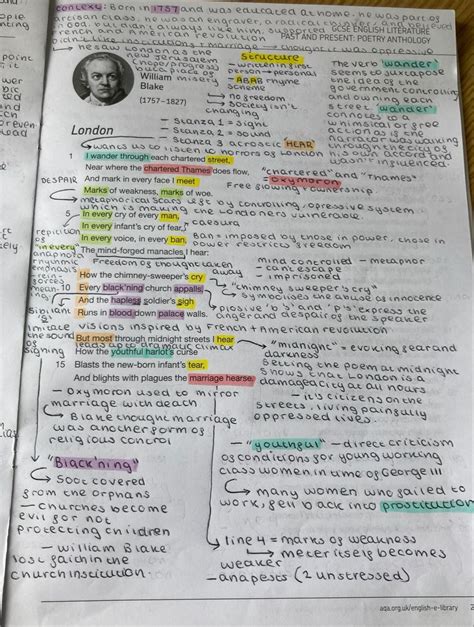 context: Born in 1757 and was educated at home. He was part of
artisan class. He was an engraver, a radical thinker and believed
French and American revolution
GCSE ENGLISH LITERATURE
PAST AND PRESENT: POETRY ANTHOLOGY
marriage → thought it was oppressive
he saw London as the
new Jerusalem
William
Blake
(1757–1827)
structure
→ written in first
person → personal
→ ABAB rhyme
scheme
→ no freedom
→ society isn't
changing
The verb 'wander'
seems to juxtapose
the idea of the
government controlling
and owning each
street. 'wander'
connotes to a
whimsical or free
action as if the
narrator was walking
through the city of
his own accord and
wasn't influenced.
- stanza 1 = sight
- stanza 2 = sound
- stanza 3 acrostic HEAR
London
→ wants us to listen to horrors of London
1 I wander through each chartered street,
Near where the chartered Thames does flow,
"chartered" and "Thames"
= oxymoron
Free flowing ownership
DESPAIR
And mark in every face I meet
Marks of weakness, marks of woe.
→ metaphorical scars left by controlling, opressive system
which is making the Londoners vulnerable.
5 In every cry of every man,
caesura
In every infant's cry of fear,
In every voice, in every ban,
Ban = imposed by those in power, those in
power restricts freedom
The mind-forged manacles I hear:
Freedom of thought taken
away
mind controlled - metaphor
- cant escape
- imprisoned
"in every"
anaphora
How the chimney-sweeper's cry
"chimney sweeper's cry"
→ symbolises the abuse of innocence
10 Every black'ning church appalls,
And the hapless soldier's sigh
→ plosive 'b's and 'p's express the
anger and despair of the speaker
Runs in blood down palace walls.
visions inspired by French + American revolution
But most through midnight streets I hear
leads up to dramatic climax
How the youthful harlot's curse
15 Blasts the new-born infant's tear,
And blights with plagues the marriage hearse.
"midnight" = evoking fear and
darkness
Setting the poem at midnight
shows that London is a
damaged city at all hours
- it's citizens on the
streets, living painfully
oppressed lives.
- oxymoron used to mirror
marriage with death
→ Blake thought marriage
was another form of
religious control
- "youthful" - direct criticism
of conditions for young working
class women in time of George III
→ many women who failed to
work, fell back into prostitution
"Black'ning"
→ soot covered
from the orphans
- churches become
evil for not
protecting children
- William Blake
lost faith in the
church institution.
→ line 4 = marks of weakness
→ meter itself becomes
weaker
- anapests (2 unstressed)
aqa.org.uk/english-e-library